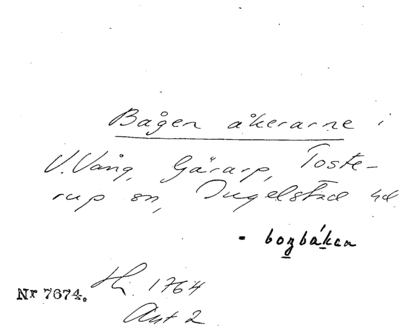 Bågen åkerarne i
V. Vång, Gärarp, Toste-
rup sn, Ingelstad hd
- bogbákan
Nr 7674. 1764
Akt 2